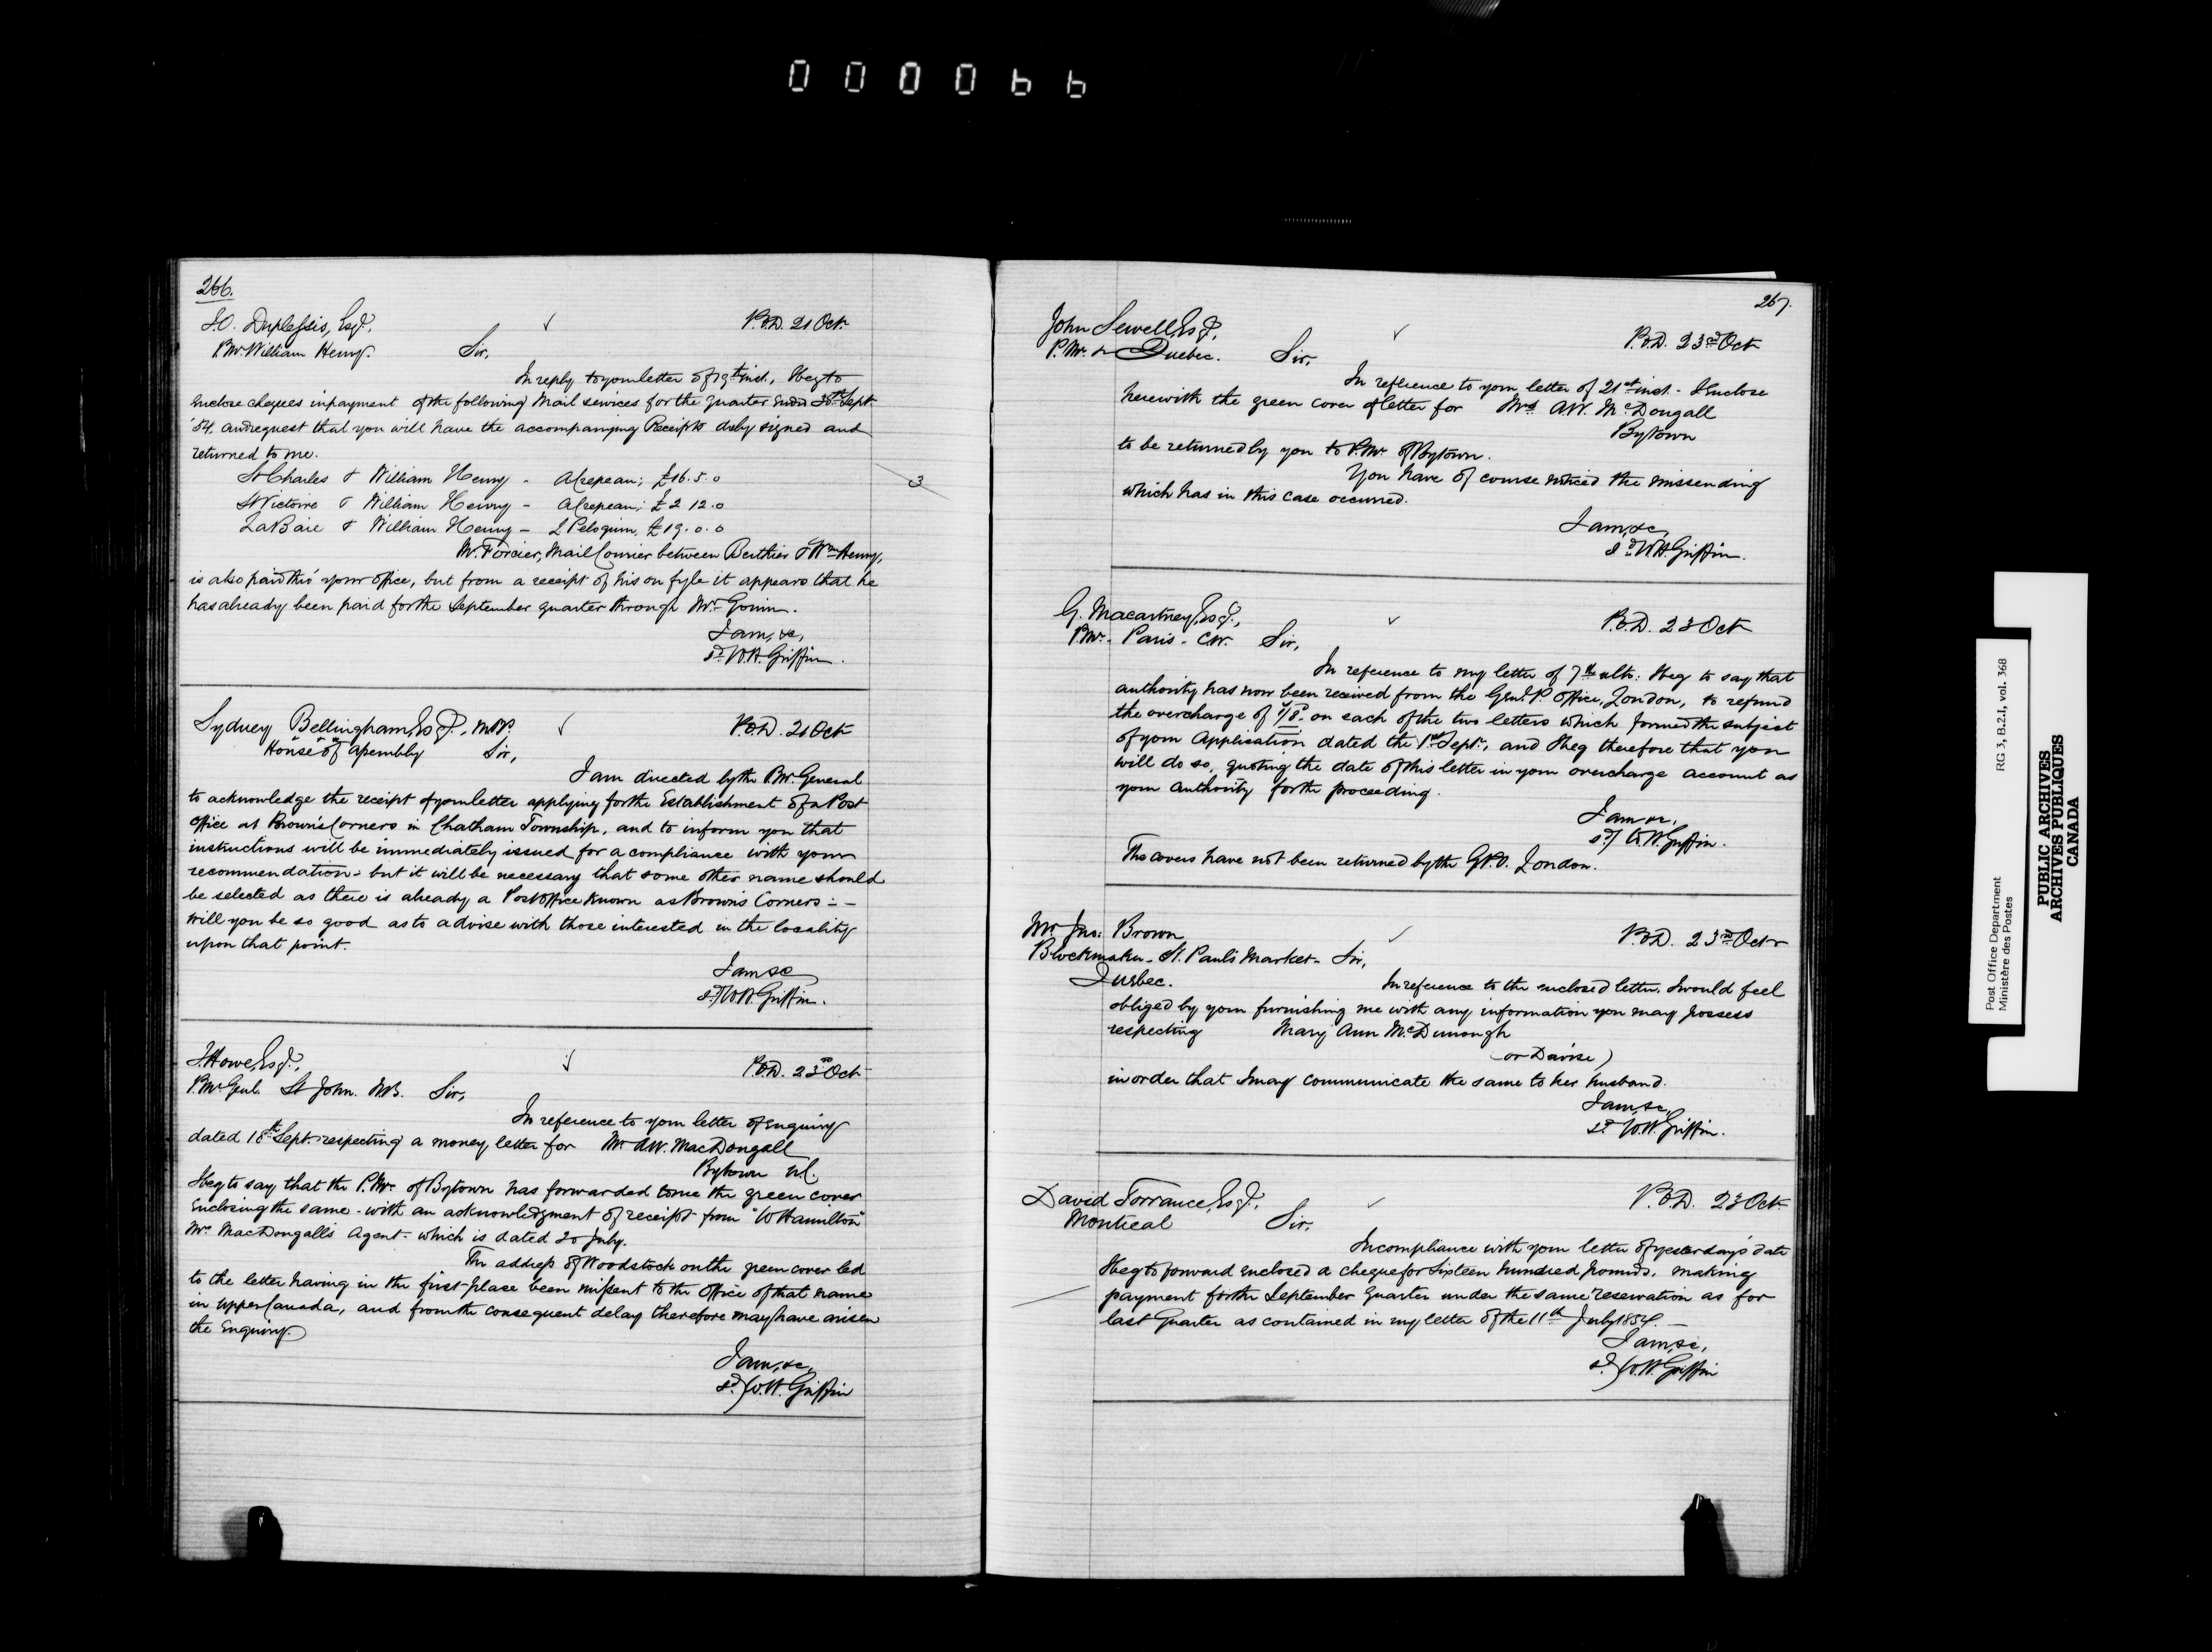 000066
266.
J.O. Duplessis, Esqr.
P.O.D. 21 Oct.
P.Mr. William Henry. Sir,
In reply to your letter of 19th inst., I beg to
enclose cheques in payment of the following Mail services for the quarter ended 30th Sept.
'54, and request that you will have the accompanying Receipts duly signed and
returned to me.
St Charles & William Henry - £16.5.0
St Victoire & William Henry - £2 12.0
LaBaie & William Henry - £19.0.0
3
Mr. Forcier, Mail Courier between Berthier & Wm Henry,
is also paid thro' your office, but from a receipt of his on fyle it appears that he
has already been paid for the September quarter through Mr. Gouin.
I am, &c,
sd. W.H. Griffin.
Sydney Bellingham, Esqr., M.P.P.
P.O.D. 21 Oct
House of Assembly Sir,
I am directed by the P.Mr. General
to acknowledge the receipt of your letter applying for the Establishment of a Post
Office at Brown's Corners in Chatham Township, and to inform you that
instructions will be immediately issued for a compliance with your
recommendation - but it will be necessary that some other name should
be selected as there is already a Post Office known as Brown's Corners -
Will you be so good as to advise with those interested in the locality
upon that point.
I am &c
sd/ W.H. Griffin.
J. Howe, Esqr.,
P.O.D. 23rd Oct
P.Mr. Genl. St John. N.B. Sir,
In reference to your letter of Enquiry
dated 18th Sept. respecting a money letter for Mr. A.W. MacDongall
Bytown U.C.
I beg to say that the P.Mr. of Bytown has forwarded to me the green cover
Enclosing the same - with an acknowledgment of receipt from "W Hamilton"
Mr. MacDongall's Agent - which is dated 20 July.
The address of Woodstock on the green cover led
to the letter having in the first place been missent to the Office of that name
in Upper Canada, and from the consequent delay therefore may have arisen
the Enquiry.
I am, &c,
sd. W.H. Griffin
267.
John Sewell, Esqr.,
P.O.D. 23rd Oct
P.Mr. Quebec. Sir,
In reference to your letter of 21st inst. I Enclose
herewith the green cover of letter for Mrs A.W. McDongall
Bytown
to be returned by you to P.Mr. of Bytown.
You have of course noticed the missending
which has in this case occurred.
I am, &c,
sd. W.H. Griffin.
G. Macartney, Esqr.,
P.O.D. 23 Oct
P.Mr. Paris - C.W. Sir,
In reference to my letter of 7th ulto: I beg to say that
authority has now been received from the Genl. P. Office, London, to refund
the overcharge of on each of the two letters which formed the subject
of your Application dated the 1st Sept., and I beg therefore that you
will do so, quoting the date of this letter in your overcharge account as
your Authority for the proceeding.
I am &c.
sd/ W.H. Griffin.
The covers have not been returned by the G.P.O. London.
Mr Jno: Brown
P.O.D. 23rd Oct
Blockmaker - St. Paul's Market - Sir,
Quebec.
In reference to the enclosed letter, I would feel
obliged by your furnishing me with any information you may possess
respecting Mary Ann McDunough
(or Davise)
in order that I may communicate the same to her husband.
I am, &c,
sd. W.H. Griffin.
David Torrance, Esqr.
P.O.D. 23 Oct
Montreal Sir,
In compliance with your letter of yesterday's date
I beg to forward enclosed a cheque for Sixteen hundred pounds, making
payment for the September Quarter under the same reservation as for
last Quarter as contained in my letter of the 11th July 1854. -
I am, &c,
sd. W.H. Griffin
Post Office Department
Ministère des Postes
RG 3, B.2.1, vol. 368
PUBLIC ARCHIVES
ARCHIVES PUBLIQUES
CANADA